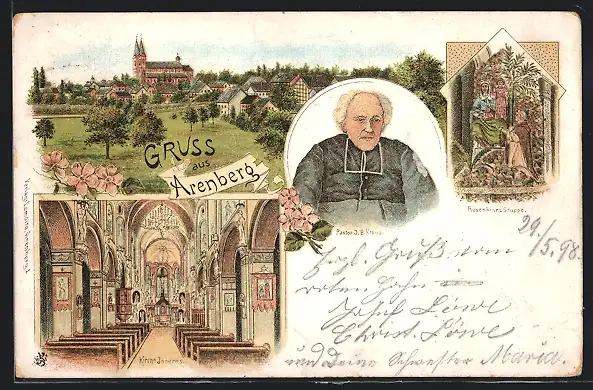 GRUSS
aus
Arenberg
Pastor J. B. Kraus.
Rosenkranz Gruppe.
Kirche Inneres.
29/5.98.
Herzl. Gruß vom
roten Hahn
Josef Löwe
Christ. Löwe
und Deine Schwester Maria.